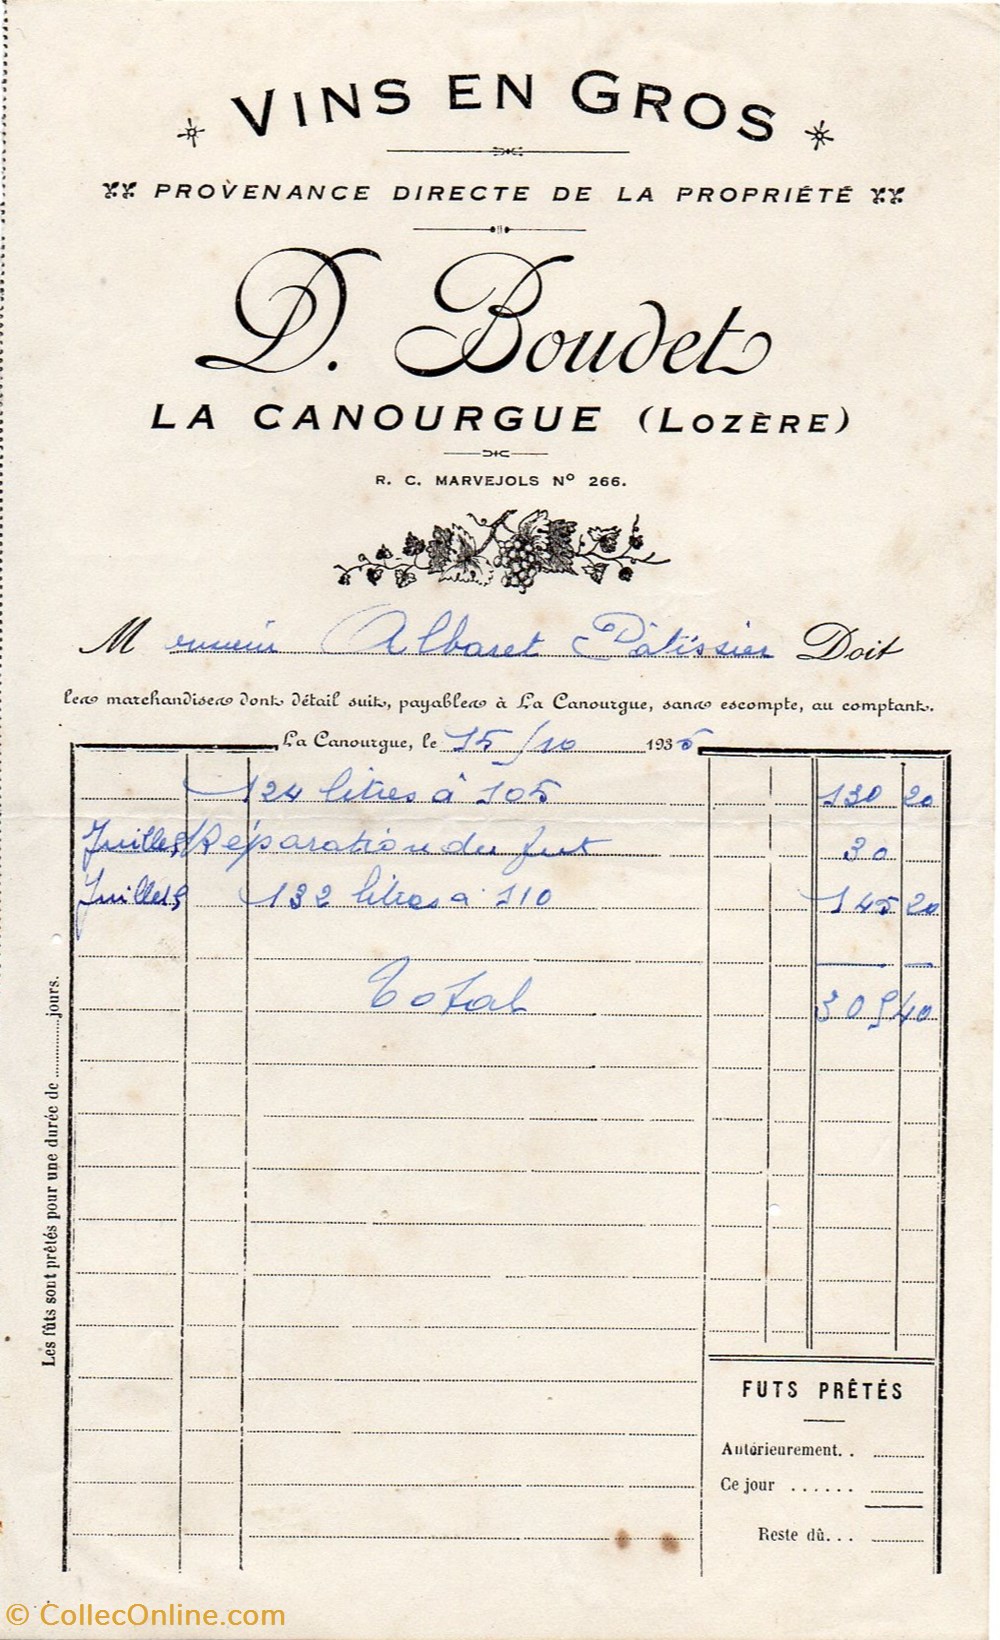 VINS EN GROS
PROVENANCE DIRECTE DE LA PROPRIÉTÉ
D. Boudet
LA CANOURGUE (LOZÈRE)
R. C. MARVEJOLS Nº 266.
Monsieur Albaret Pâtissier Doit
les marchandises dont détail suit, payables à La Canourgue, sans escompte, au comptant.
La Canourgue, le 15/10 1935
124 litres à 105 130 20
Juillet Réparation du fut 30
Juillet 132 litres à 110 145 20
Total 305 40
Les fûts sont prêtés pour une durée de jours.
FUTS PRÊTÉS
Antérieurement. .
Ce jour . . . . . .
Reste dû. . .
© CollecOnline.com